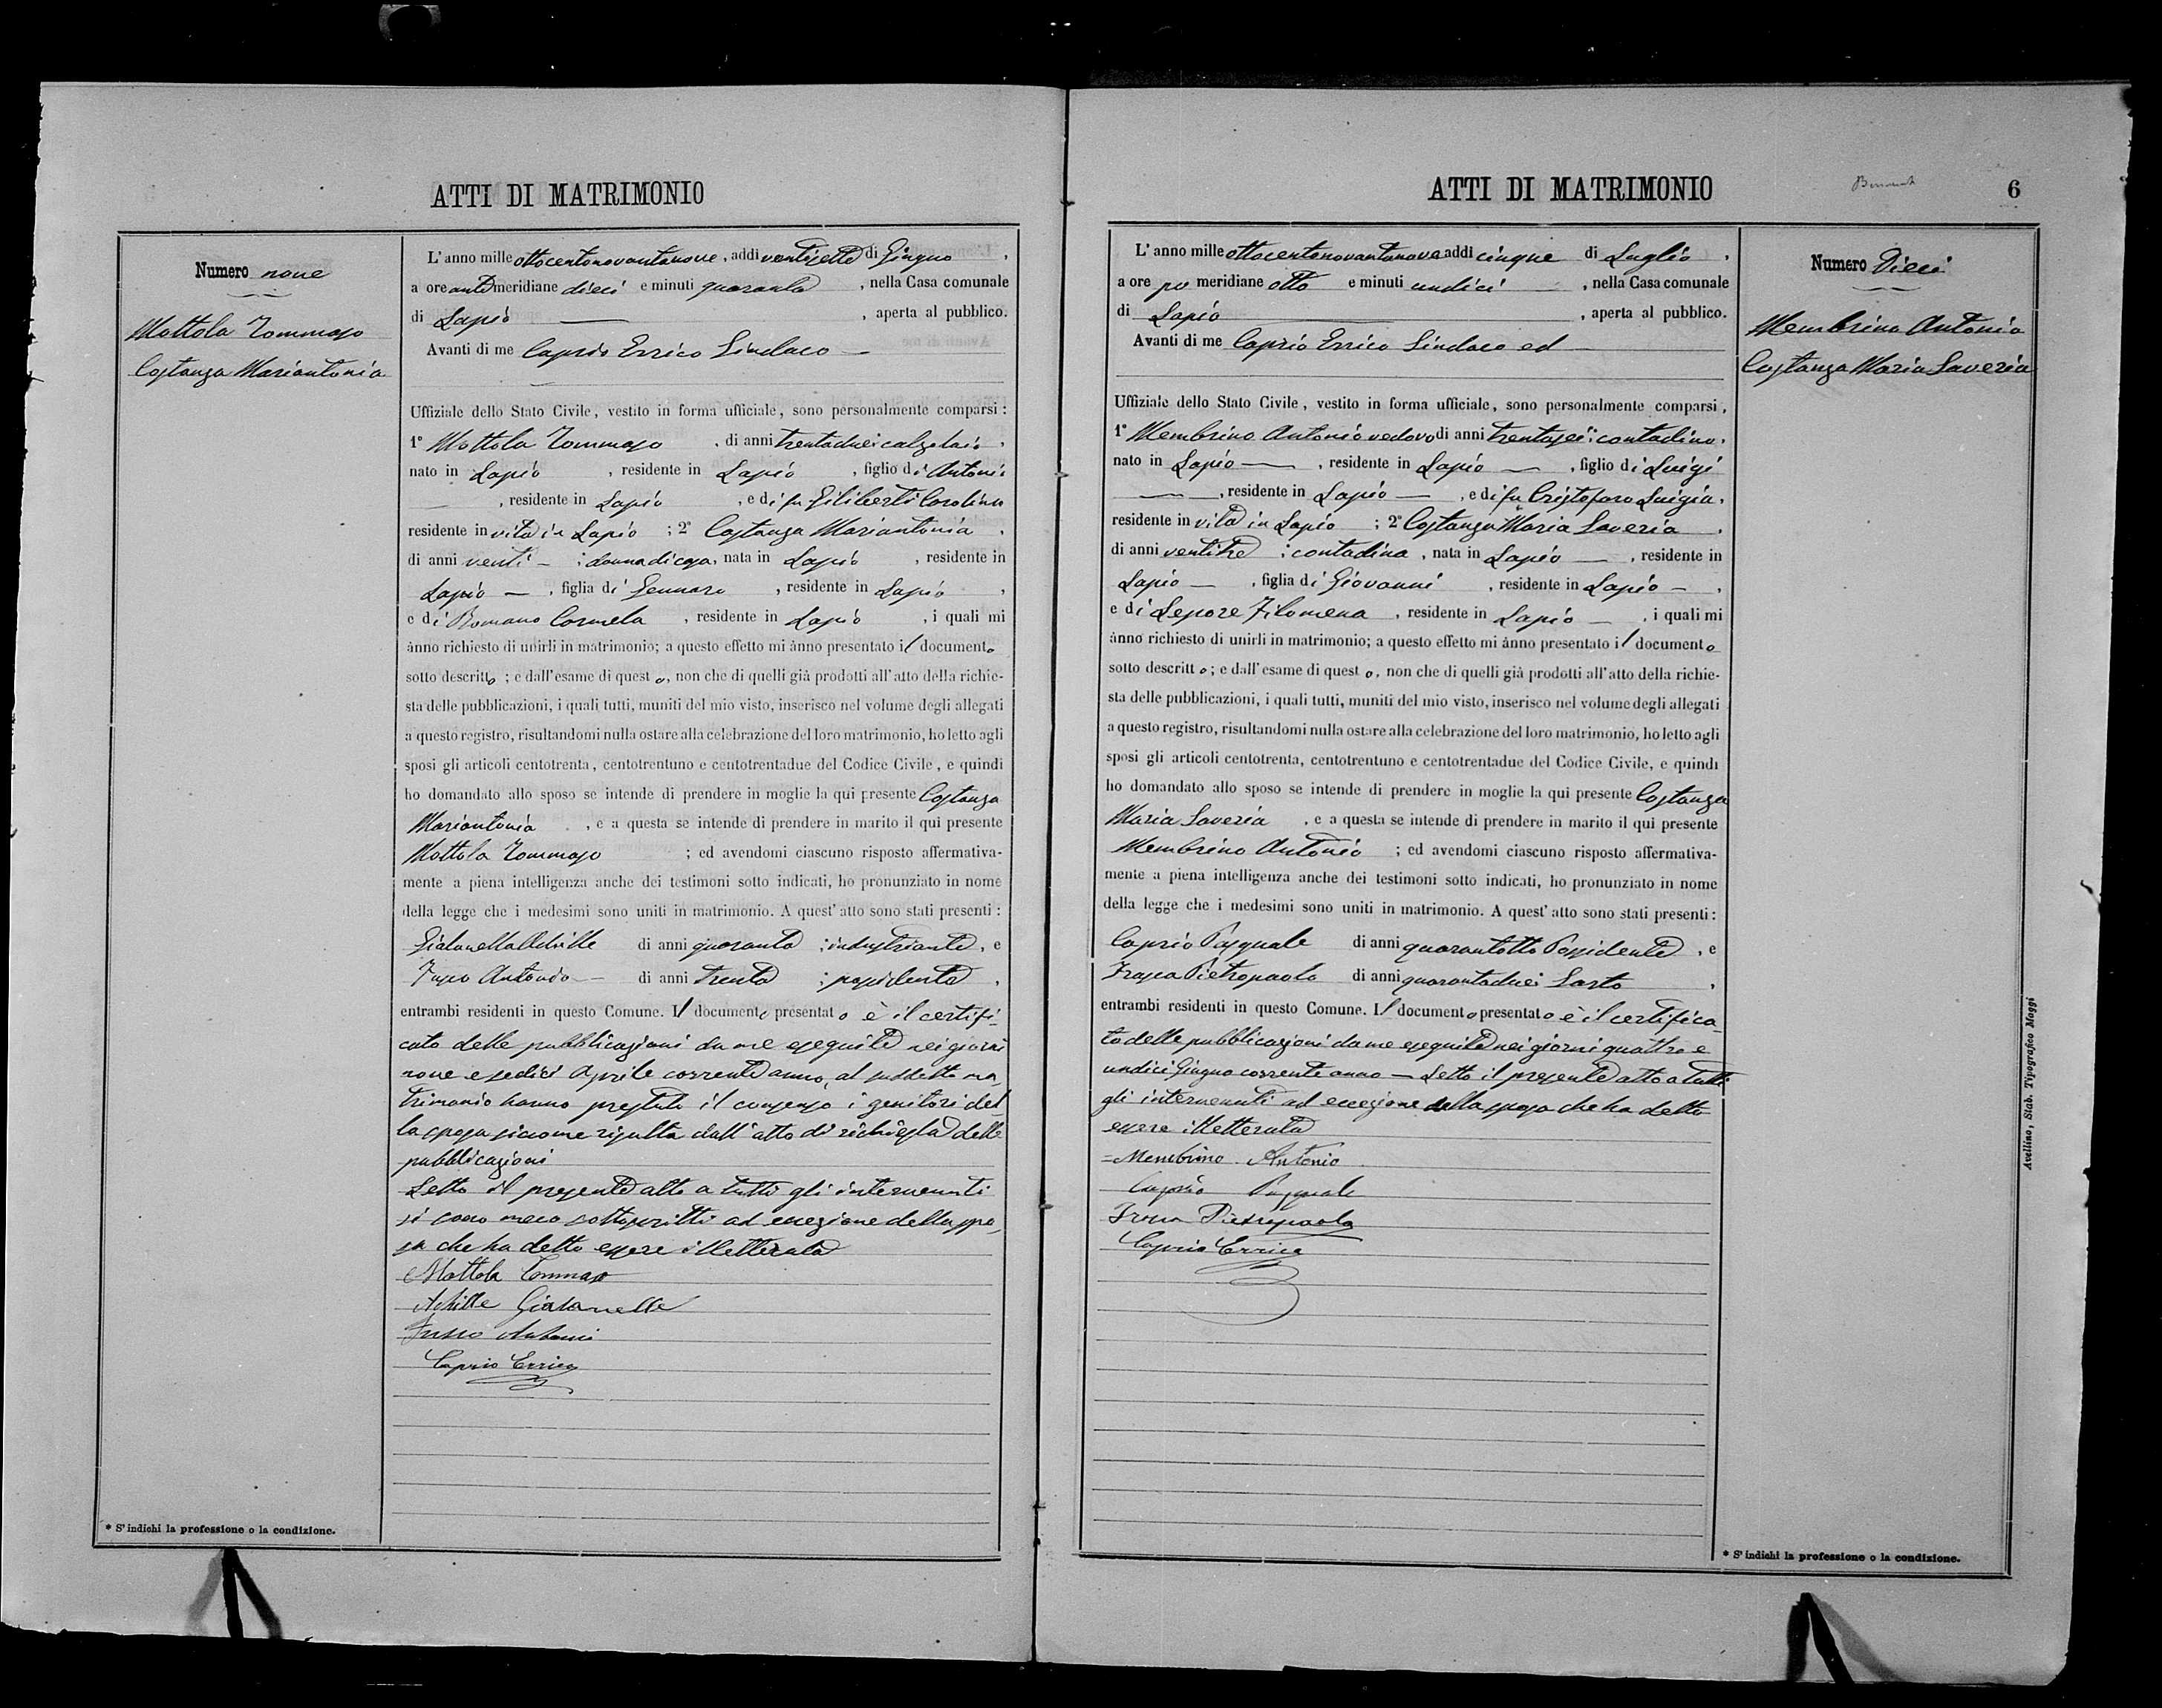 ATTI DI MATRIMONIO
Numero nove
Mottola Tommaso
Costanza Mariantonia
L'anno mille ottocentonovantanove, addi ventisette di Giugno,
a ore anti meridiane dieci e minuti quaranta, nella Casa comunale
di Lapio, aperta al pubblico.
Avanti di me Caprio Errico Sindaco
Uffiziale dello Stato Civile, vestito in forma ufficiale, sono personalmente comparsi:
1° Mottola Tommaso, di anni trentadue; calzolaio,
nato in Lapio, residente in Lapio, figlio di Antonio
, residente in Lapio, e di fu Giliberti Carolina
residente in vita in Lapio; 2° Costanza Mariantonia,
di anni venti; donna di casa, nata in Lapio, residente in
Lapio, figlia di Gennaro, residente in Lapio,
e di Romano Carmela, residente in Lapio, i quali mi
ànno richiesto di unirli in matrimonio; a questo effetto mi ànno presentato il documento
sotto descritto; e dall'esame di questo, non che di quelli già prodotti all'atto della richie-
sta delle pubblicazioni, i quali tutti, muniti del mio visto, inserisco nel volume degli allegati
a questo registro, risultandomi nulla ostare alla celebrazione del loro matrimonio, ho letto agli
sposi gli articoli centotrenta, centotrentuno e centotrentadue del Codice Civile, e quindi
ho domandato allo sposo se intende di prendere in moglie la qui presente Costanza
Mariantonia, e a questa se intende di prendere in marito il qui presente
Mottola Tommaso; ed avendomi ciascuno risposto affermativa-
mente a piena intelligenza anche dei testimoni sotto indicati, ho pronunziato in nome
della legge che i medesimi sono uniti in matrimonio. A quest'atto sono stati presenti:
di anni quaranta; industriante, e
di anni trenta; possidente,
entrambi residenti in questo Comune. Il documento presentato è il certifi-
cato delle pubblicazioni da me eseguite nei giorni
nove e sedici Aprile corrente anno, al suddetto ma-
trimonio hanno prestato il consenso i genitori del-
la sposa siccome risulta dall'atto di richiesta delle
pubblicazioni
Letto il presente atto a tutti gli intervenuti
si sono meco sottoscritti ad eccezione della spo-
sa che ha detto essere illetterata
Mottola Tommaso
Achille Gialanella
Antonio
Caprio Errico
* S'indichi la professione o la condizione.
ATTI DI MATRIMONIO
6
Numero Dieci
Membrino Antonio
Costanza Maria Saveria
L'anno mille ottocentonovantanove addi cinque di Luglio,
a ore po meridiane otto e minuti undici, nella Casa comunale
di Lapio, aperta al pubblico.
Avanti di me Caprio Errico Sindaco ed
Uffiziale dello Stato Civile, vestito in forma ufficiale, sono personalmente comparsi,
1° Membrino Antonio vedovo di anni trentasei; contadino,
nato in Lapio, residente in Lapio, figlio di Luigi
, residente in Lapio, e di fu Cristofaro Luigia,
residente in vita in Lapio; 2° Costanza Maria Saveria,
di anni ventitre; contadina, nata in Lapio, residente in
Lapio, figlia di Giovanni, residente in Lapio,
e di Lepore Filomena, residente in Lapio, i quali mi
ànno richiesto di unirli in matrimonio; a questo effetto mi ànno presentato il documento
sotto descritto; e dall'esame di questo, non che di quelli già prodotti all'atto della richie-
sta delle pubblicazioni, i quali tutti, muniti del mio visto, inserisco nel volume degli allegati
a questo registro, risultandomi nulla ostare alla celebrazione del loro matrimonio, ho letto agli
sposi gli articoli centotrenta, centotrentuno e centotrentadue del Codice Civile, e quindi
ho domandato allo sposo se intende di prendere in moglie la qui presente Costanza
Maria Saveria, e a questa se intende di prendere in marito il qui presente
Membrino Antonio; ed avendomi ciascuno risposto affermativa-
mente a piena intelligenza anche dei testimoni sotto indicati, ho pronunziato in nome
della legge che i medesimi sono uniti in matrimonio. A quest'atto sono stati presenti:
Caprio Pasquale di anni quarantotto Possidente, e
Pietropaolo di anni quarantadue; Sarto,
entrambi residenti in questo Comune. Il documento presentato è il certifica-
to delle pubblicazioni da me eseguite nei giorni quattro e
undici Giugno corrente anno — Letto il presente atto a tutti
gli intervenuti ad eccezione della sposa che ha detto
essere illetterata
Membrino Antonio
Caprio Pasquale
Pietropaolo
Caprio Errico
* S'indichi la professione o la condizione.
Avellino, Stab. Tipografico Maggi